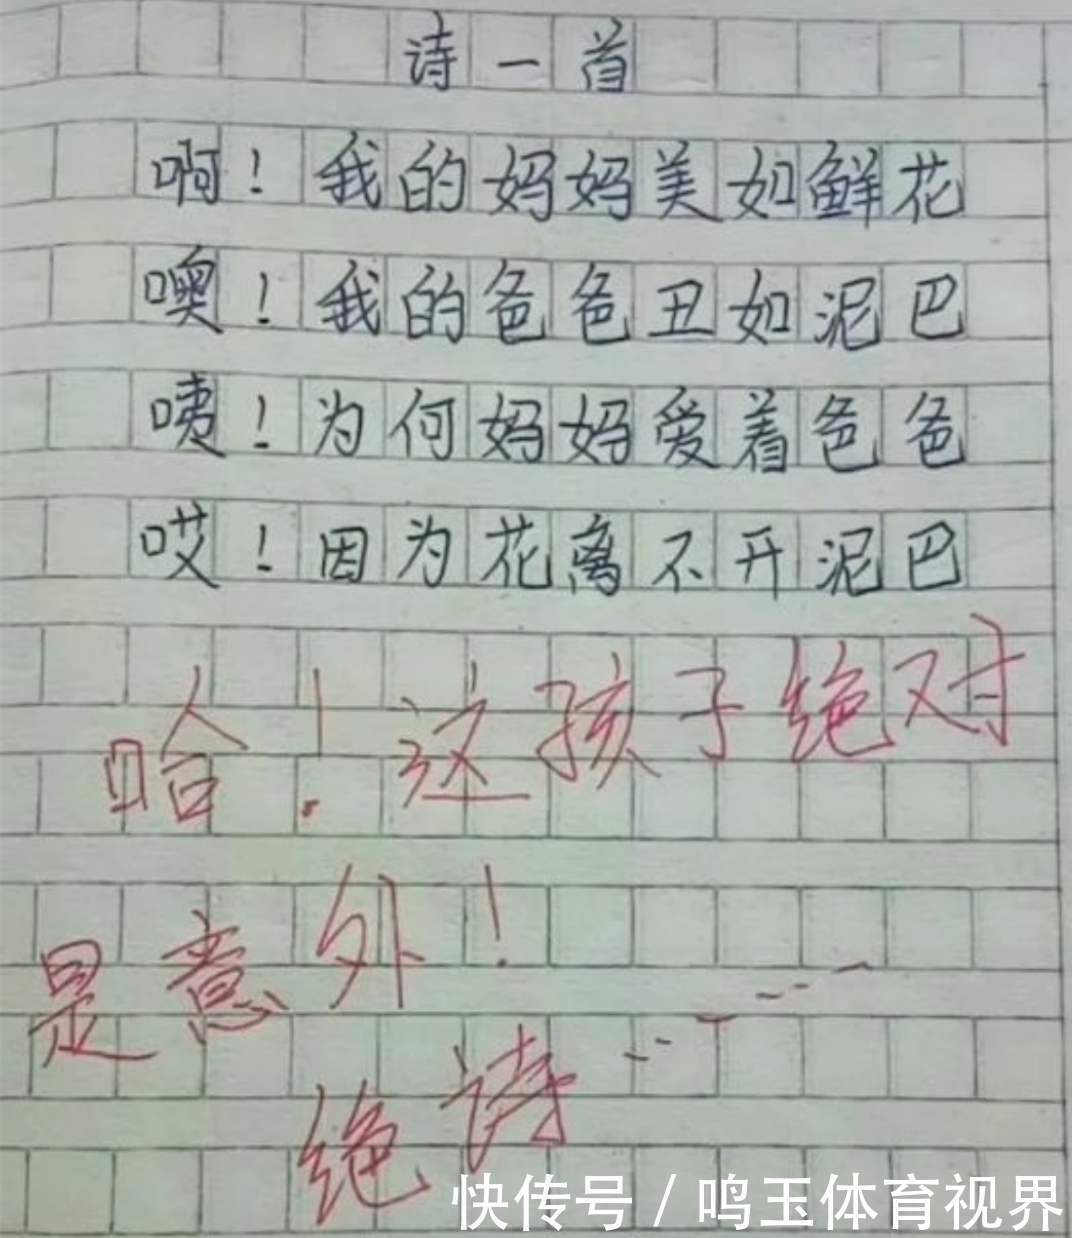 诗一首
啊！我的妈妈美如鲜花
噢！我的爸爸丑如泥巴
咦！为何妈妈爱着爸爸
哎！因为花离不开泥巴
哈！这孩子绝对
是意外！
绝诗……
快传号／鸣玉体育视界